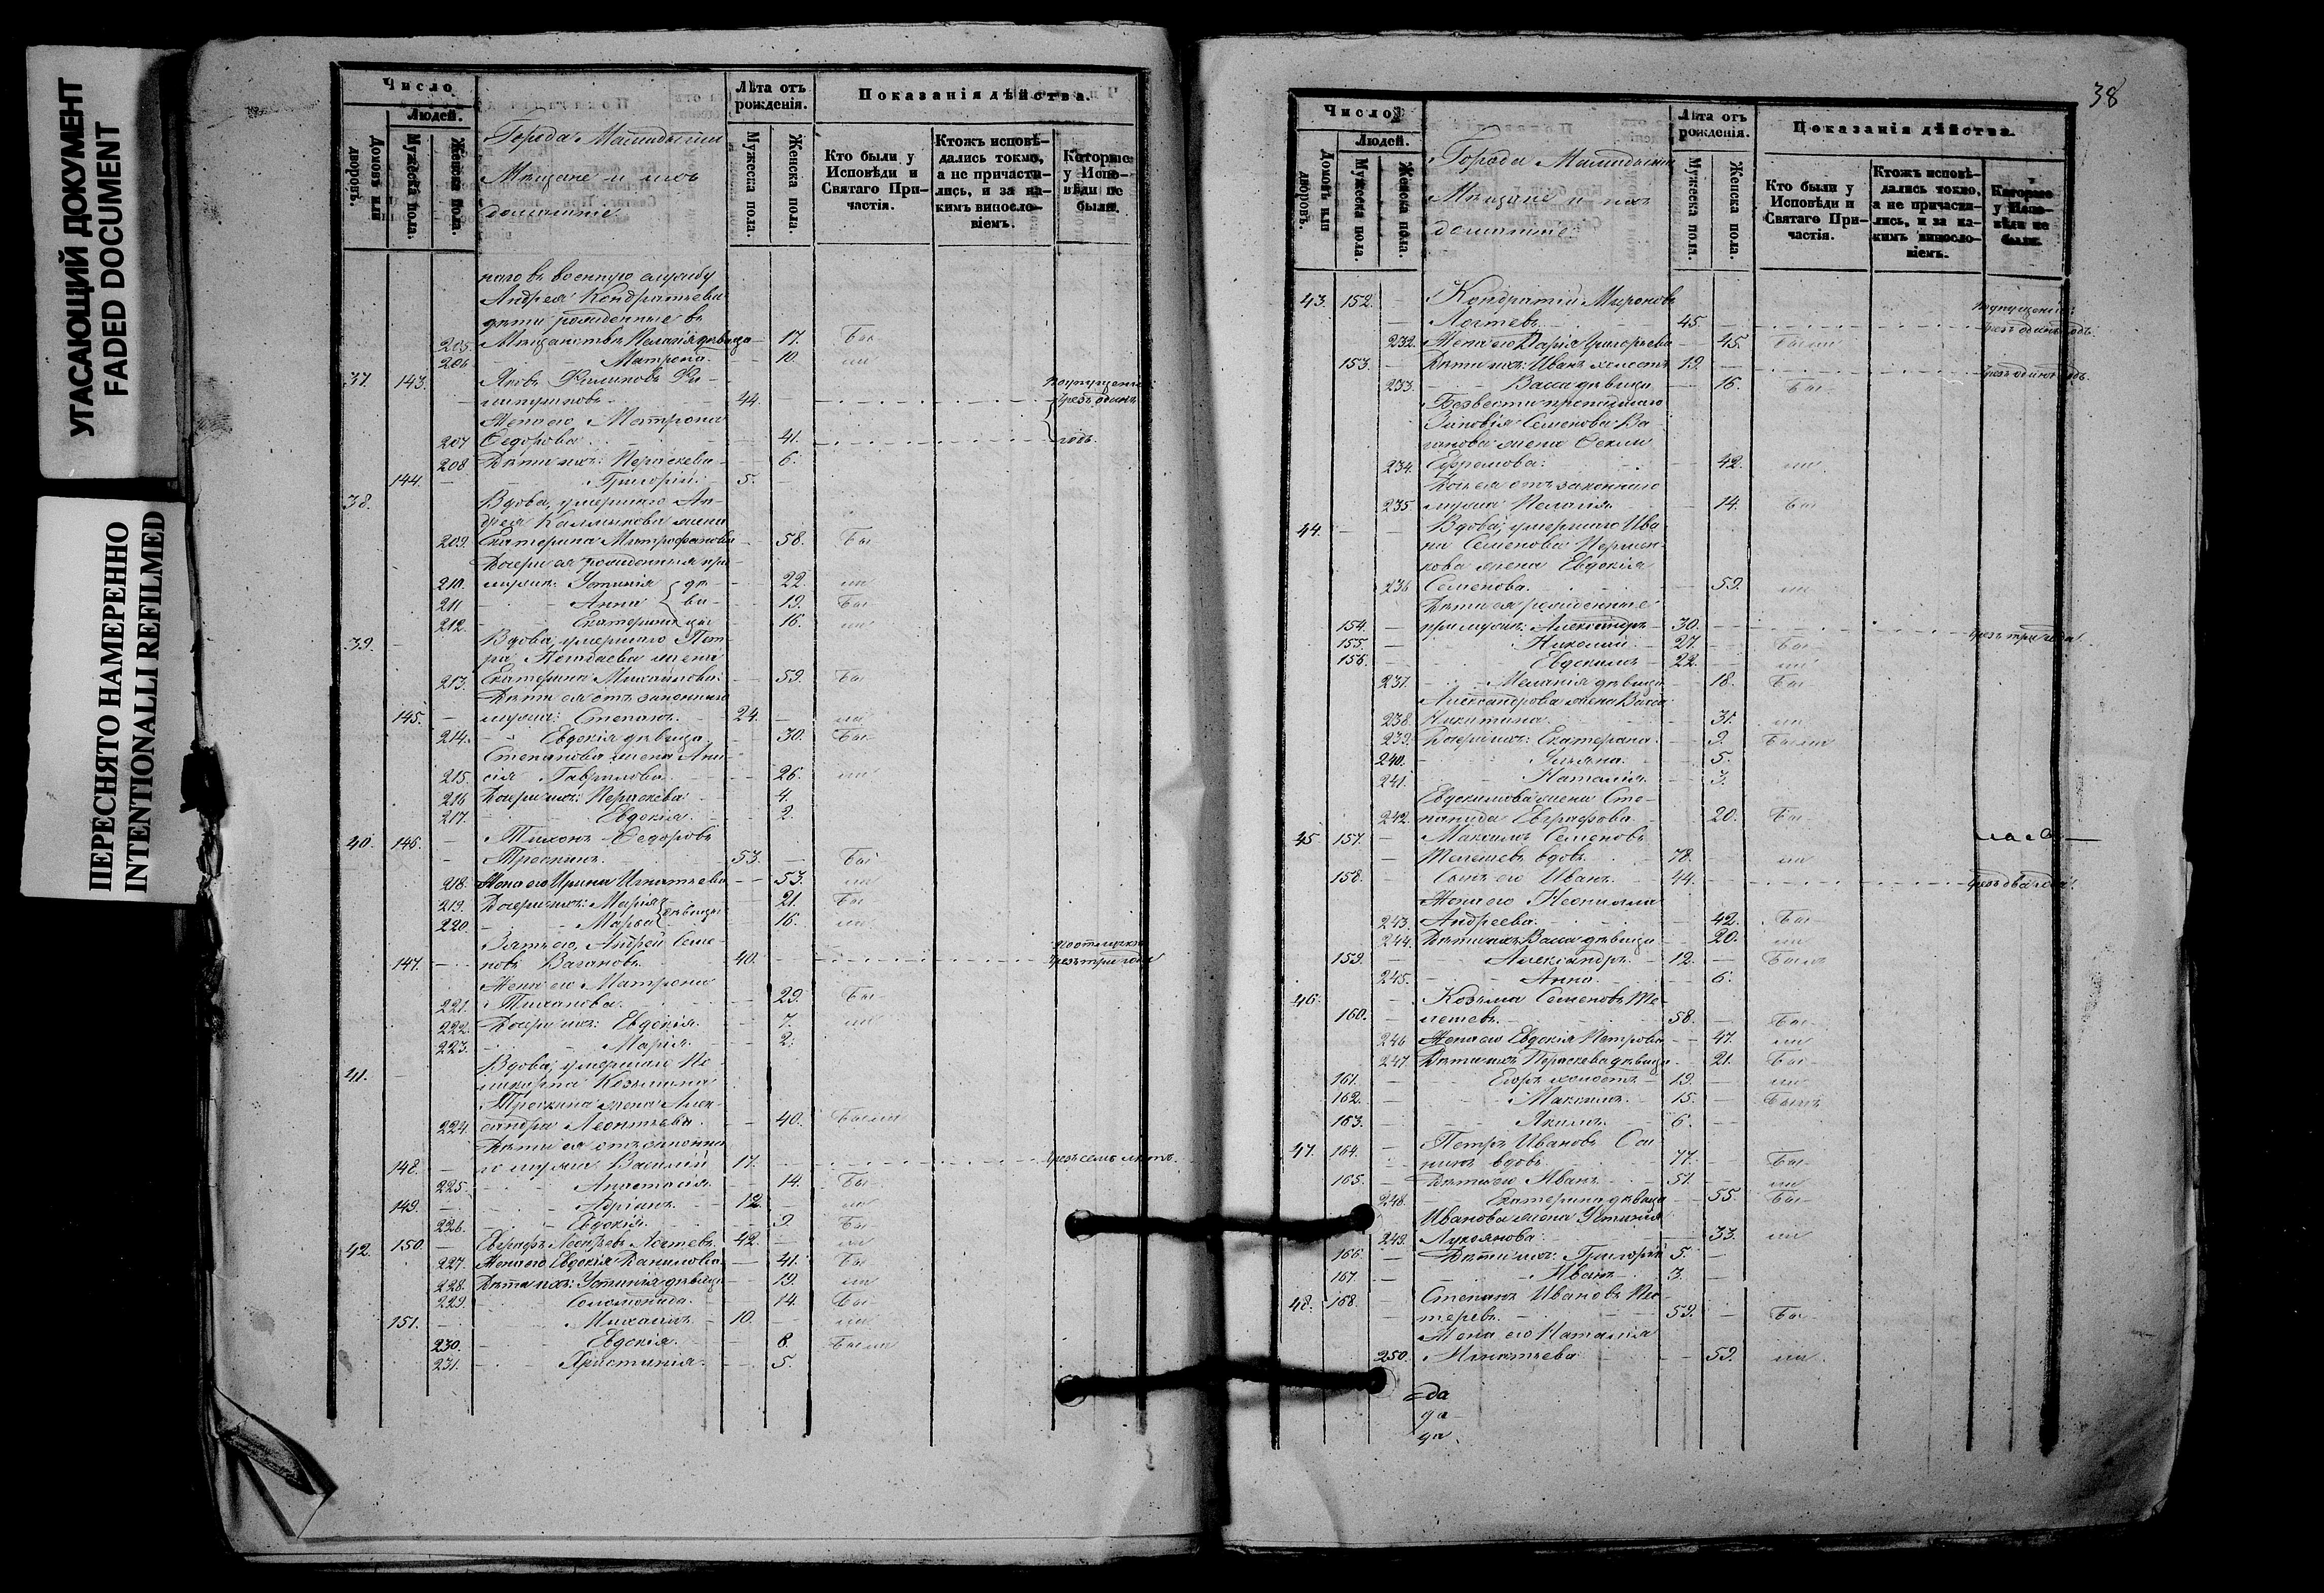 УГАСАЮЩИЙ ДОКУМЕНТ
FADED DOCUMENT
ПЕРЕСНЯТО НАМЕРЕННО
INTENTIONALLI REFILMED
Число
Людей.
Домовъ или дворовъ.
Мужеска пола.
Женска пола.
Города
Мѣщане и ихъ
домашніе
Лѣта отъ рожденія.
Мужеска пола.
Женска пола.
Показанія дѣйства.
Кто были у Исповѣди и Святаго Причастія.
Ктожъ исповѣдались токмо, а не причастились, и за какимъ винословіемъ.
Которые у Исповѣди не были.
наго въ военную службу
Андрея Кондратьева
дѣти рожденные въ
205. Мѣщанствѣ Пелагія дѣвица 17. Бы
206 Матрона 10. ли
37. 143. Яковъ Филиповъ Фи-
липуновъ 44. чрезъ одинъ
Жена его Матрона
207 Ѳедорова 41. годъ
208 Дѣти ихъ: Параскева 6.
144. Григорій 5.
38. Вдова, умершаго Ан-
дрея Калмыкова жена
209. Екатерина Митрофанова 58. Бы
Дочери ея рожденныя при
210. мужѣ: Устинія дѣ- 22 ли
211 Анна ви- 19. Бы
212. Екатерина цы 16. ли
39. Вдова, умершаго Пет-
ра жена
213. Екатерина Михайлова 59. Бы
Дѣти ея отъ законнаго
145. мужа: Степанъ 24. ли
214. Евдокія дѣвица 30. Бы
Степанова жена Ани-
215. сія Гаврилова 26. ли
216 Дочери ихъ: Параскева 4.
217. Евдокія 2.
40. 146. Тихонъ Ѳедоровъ
Трескинъ 53. Бы
218. Жена его Ирина Игнатьева 53. ли
219. Дочери ихъ: Марія дѣвицы 21. Бы
220. Марѳа 16. ли
Зять его, Андрей Семе-
147. новъ Вагановъ 40. чрезъ три года
Жена его Матрона
221. Тиханова 29. Бы
222. Дочери ихъ: Евдокія 7. ли
223. Марія 2.
41. Вдова, умершаго По-
ликарпа Козьмина
Трескина жена Алек-
224. сандра Леонтьева 40. Были
Дѣти ея отъ законна-
148. го мужа Василій 17. чрезъ семь лѣтъ
225. Анастасія 14. Бы
149. Адріанъ 12. ли
226. Евдокія 9. Бы
42. 150. Евграфъ Леонтьевъ Логтевъ 42. ли
227. Жена его Евдокія Данилова 41. Бы
228. Дѣти ихъ: Устинія дѣвица 19. ли
229. Соломонида 14. Бы
151. Михаилъ 10. ли
230. Евдокія 8. Были
231. Христинія 5.
38
Число
Людей.
Домовъ или дворовъ.
Мужеска пола.
Женска пола.
Города
Мѣщане и ихъ
домашніе
Лѣта отъ рожденія.
Мужеска пола.
Женска пола.
Показанія дѣйства.
Кто были у Исповѣди и Святаго Причастія.
Ктожъ исповѣдались токмо, а не причастились, и за какимъ винословіемъ.
Которые у Исповѣди не были.
43. 152. Кондратій Мироновъ
Логтевъ 45. чрезъ одинъ годъ
232. Жена его Дарія Григорьева 45. Были
153. Дѣти ихъ: Иванъ холостъ 19. чрезъ одинъ годъ
233. Васса дѣвица 16. Бы
Безвестно пропавшаго
Зиновія Семенова Ва-
ганова жена Ѳекла
234. Ефремова 42. ли
Дочь ея отъ законнаго
235. мужа Пелагія 14. Бы
44. Вдова, умершаго Ива-
на Семенова
кова жена Евдокія
236 Семенова 59. ли
Дѣти ея рожденные
154. при мужѣ: Александръ 30. чрезъ три года
155. Николай 27. Бы
156. Евдокимъ 22. ли
237. Меланія дѣвица 18. Бы
Александрова жена Васса
238. Никитина 31. ли
239. Дочери ихъ: Екатерина 9. Были
240. Ульяна 5.
241. Наталія 3.
Евдокимова жена Сте-
242. панида Евграфова 20. Бы
45 157. Максимъ Семеновъ
Телешевъ вдовъ 78. ли
158. Сынъ его Иванъ 44. чрезъ два года
Жена его Неонила
243. Андреева 42. Бы
244. Дѣти ихъ Васса дѣвица 20. ли
159. Александръ 12. Былъ
245. Анна 6.
46. Козьма Семеновъ Те-
160. лешевъ 58. Бы
246 Жена его Евдокія Петрова 47. ли
247. Дѣти ихъ Параскева дѣвица 21. Бы
161. Егоръ холостъ 19. ли
162. Максимъ 15. Былъ
163. Акимъ 6.
47. 164. Петръ Ивановъ
вдовъ 77. Бы
165. Дѣти его Иванъ 51. ли
248. Екатерина дѣвица 55. Бы
Иванова жена Устинія
249. Лукоянова 33. ли
166. Дѣти ихъ: Григорій 5.
167. Иванъ 3.
48. 168. Степанъ Ивановъ
59. Бы
Жена его Наталія
250. Игнатьева 59. ли
да
да
да